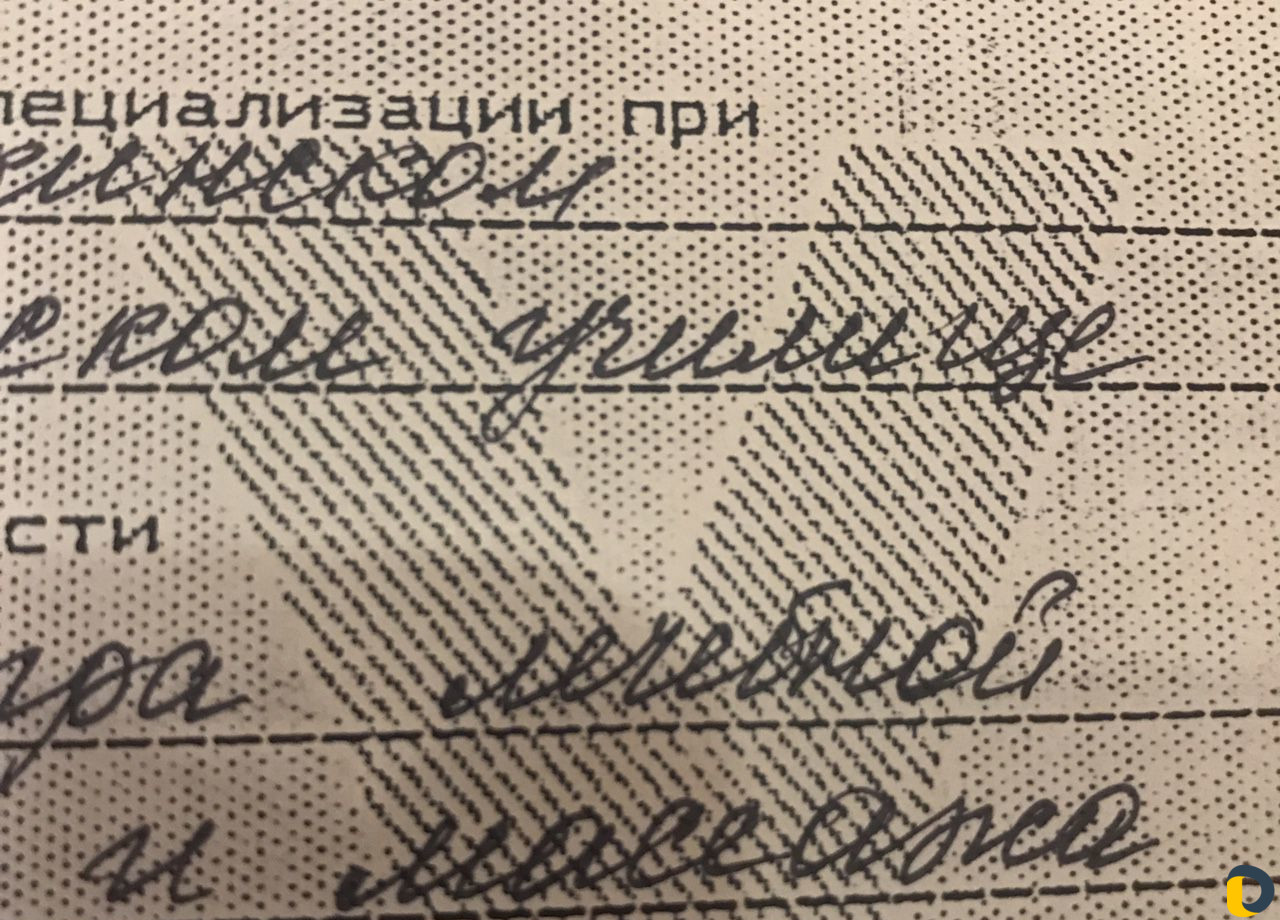 пециализации при
инском
ском училище
сти
ра лечебной
и массажа